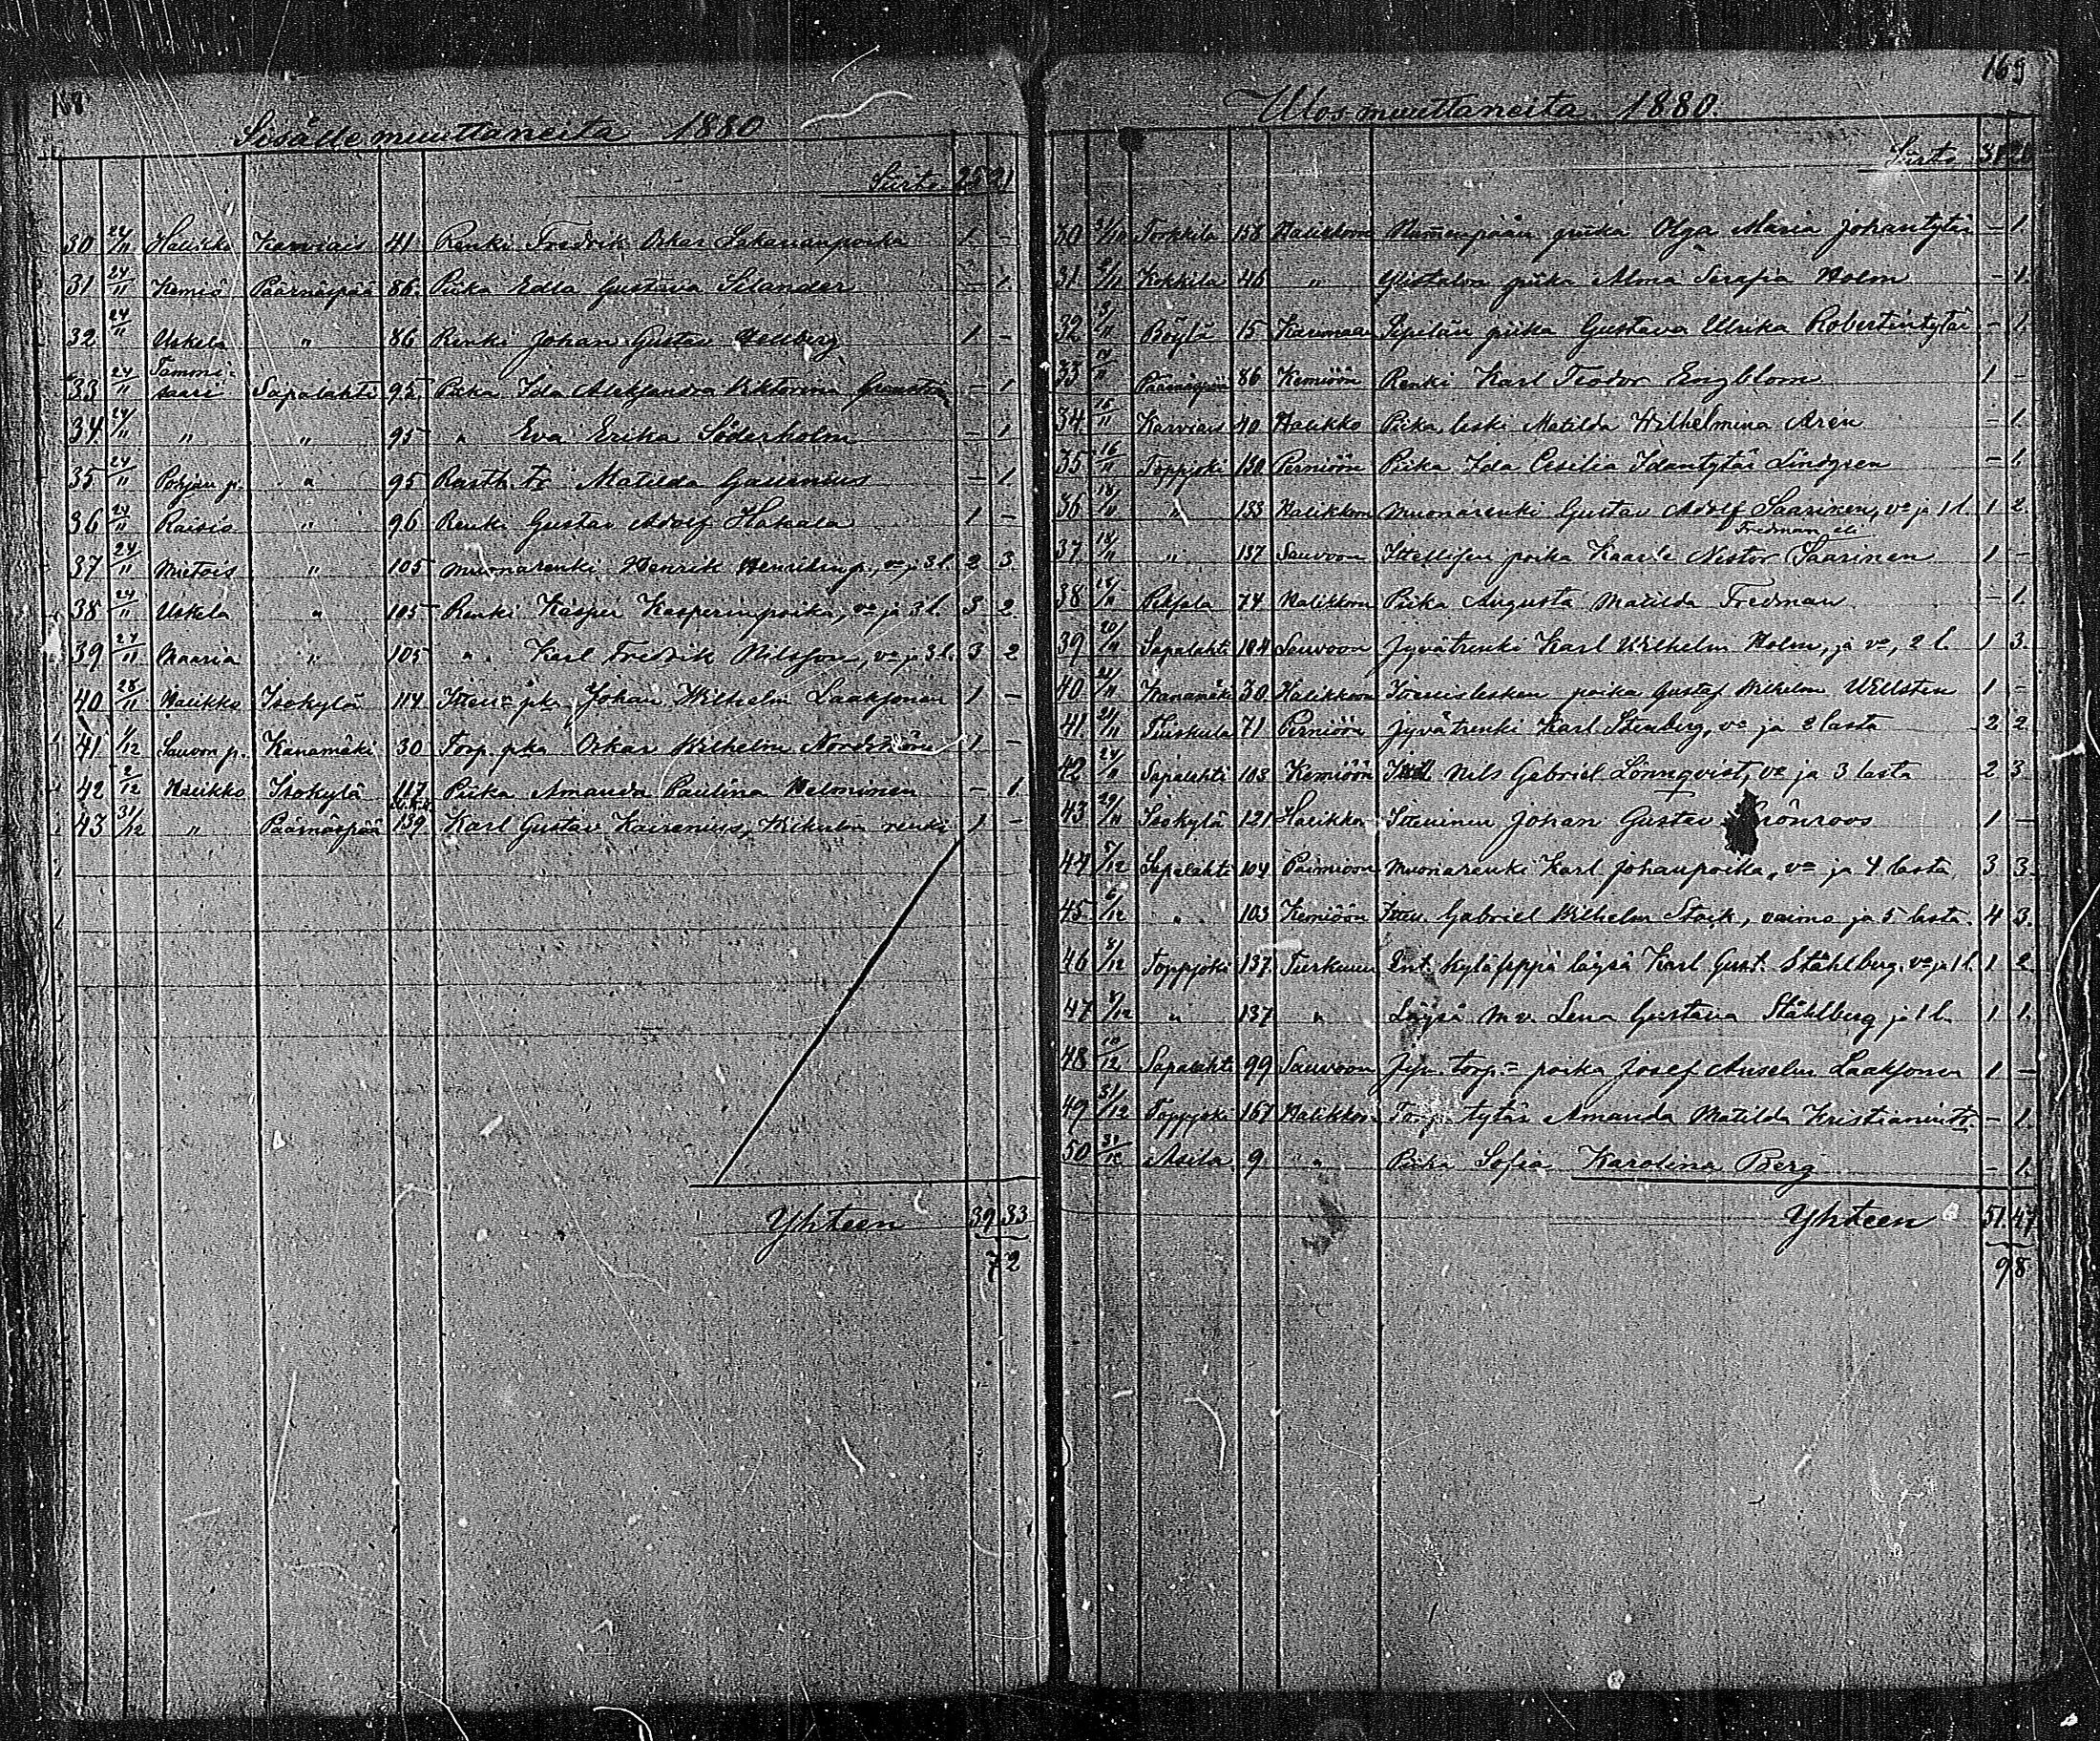 168
Sisälle muuttaneita 1880
Siirto 25 21
30 24/11 Halikko Karviais 41 Renki Fredrik Oskar Sakarianpoika 1 -
31 24/11 Kemiö Päärnäspää 86 Piika Edla Gustava Selander - 1
32 24/11 Uskela " 86 Renki Johan Gustav Hellberg 1 -
33 24/11 Tammisaari Sapalahti 95 Piika Ida Aleksandra Viktorina - 1
34 24/11 " " 95 " Eva Erika Söderholm - 1
35 24/11 Pohjan p. " 95 Matilda Gauenius - 1
36 24/11 Raisio " 96 Renki Gustav Adolf Hakala 1 -
37 24/11 Mietois " 105 Muonarenki Henrik Henrikinp., vo ja 3 l. 2 3
38 24/11 Uskela " 105 Renki Kasper Kasperinpoika, vo ja 3 l. 3 2
39 24/11 Maaria " 105 " Karl Fredrik Nilsson, vo ja 3 l. 3 2
40 28/11 Halikko Isokylä 114 Itell: pka Johan Wilhelm Laaksonen 1 -
41 1/12 Sauvon p. Kanamäki 30 Torp. pka Oskar Wilhelm Nordström 1 -
42 2/12 Halikko Isokylä 117 Piika Amanda Paulina Helminen - 1
43 31/12 " Päärnäspää 139 Karl Gustav Kairenius, renki 1 -
Yhteen 39 33
72
169
Ulos muuttaneita 1880.
Siirto 31 20
30 31/10 Torkkila 158 Halikkoon piika Olga Maria Johantytär - 1
31 2/11 Kokkila 46 " Ylistalon piika Alma Serafia Holm - 1
32 9/11 Böylä 15 Karunaan Sepelän piika Gustava Ulrika Robertintytär - 1
33 11 Päärnäspää 86 Kemiöön Renki Karl Teodor Engblom 1 -
34 15/11 Karviais 40 Halikko Piika leski Matilda Wilhelmina Arén - 1
35 16/11 Toppjoki 130 Perniöön Piika Ida Cesilia Idantytär Lindgren - 1
36 18/11 " 133 Halikkoon Muonarenki Gustav Adolf Saarinen, vo ja 1 l. 1 2
Fredman eli
37 18/11 " 137 Sauvoon Itellisen poika Kaarle Nestor Saarinen 1 -
38 18/11 Peksala 74 Halikkoon Piika Augusta Matilda Fredman - 1
39 20/11 Sapalahti 104 Sauvoon Jyvätrenki Karl Wilhelm Holm, ja vo, 2 l. 1 3
40 21/11 Kanamäki 30 Halikkoon Itellislesken poika Gustaf Wilhelm Wellsten 1 -
41 21/11 Tiiskula 71 Perniöön Jyvätrenki Karl Stenberg, vo ja 2 lasta 2 2
42 24/11 Sapalahti 103 Kemiöön Itell Nils Gabriel Lönnqvist, vo ja 3 lasta 2 3
43 29/11 Isokylä 121 Halikko Itellinen Johan Gustav Grönroos 1 -
44 5/12 Sapalahti 104 Paimioon Muonarenki Karl Johanpoika, vo ja 4 lasta 3 3
45 6/12 " 103 Kemiöön Itell. Gabriel Wilhelm Stark, vaimo ja 5 lasta 4 3
46 8/12 Toppjoki 137 Turkuun Ent. kyläseppä löysä Karl Gust. Ståhlberg, vo ja 1 l. 1 2
47 8/12 " 137 " Löysä mv. Lena Gustava Ståhlberg ja 1 l. 1 1
48 10/12 Sapalahti 99 Sauvoon torp.= poika Josef Anselm Laaksonen 1 -
49 31/12 Toppjoki 151 Halikkoon Torp. tytär Amanda Matilda Kristianintr. - 1
50 31/12 Asila 9 " Piika Sofia Karolina Berg - 1
Yhteen 51 47
98